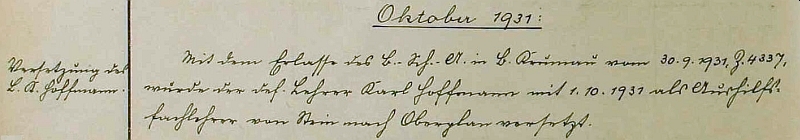 Oktober 1931:
Versetzung des
L. K. Hoffmann.
Mit dem Erlasse des B.-Sch.-A. in B. Krumau vom 30.9.1931, Z. 4337,
wurde der def. Lehrer Karl Hoffmann mit 1.10.1931 als Aushilfs-
fachlehrer von Stein nach Oberplan versetzt.